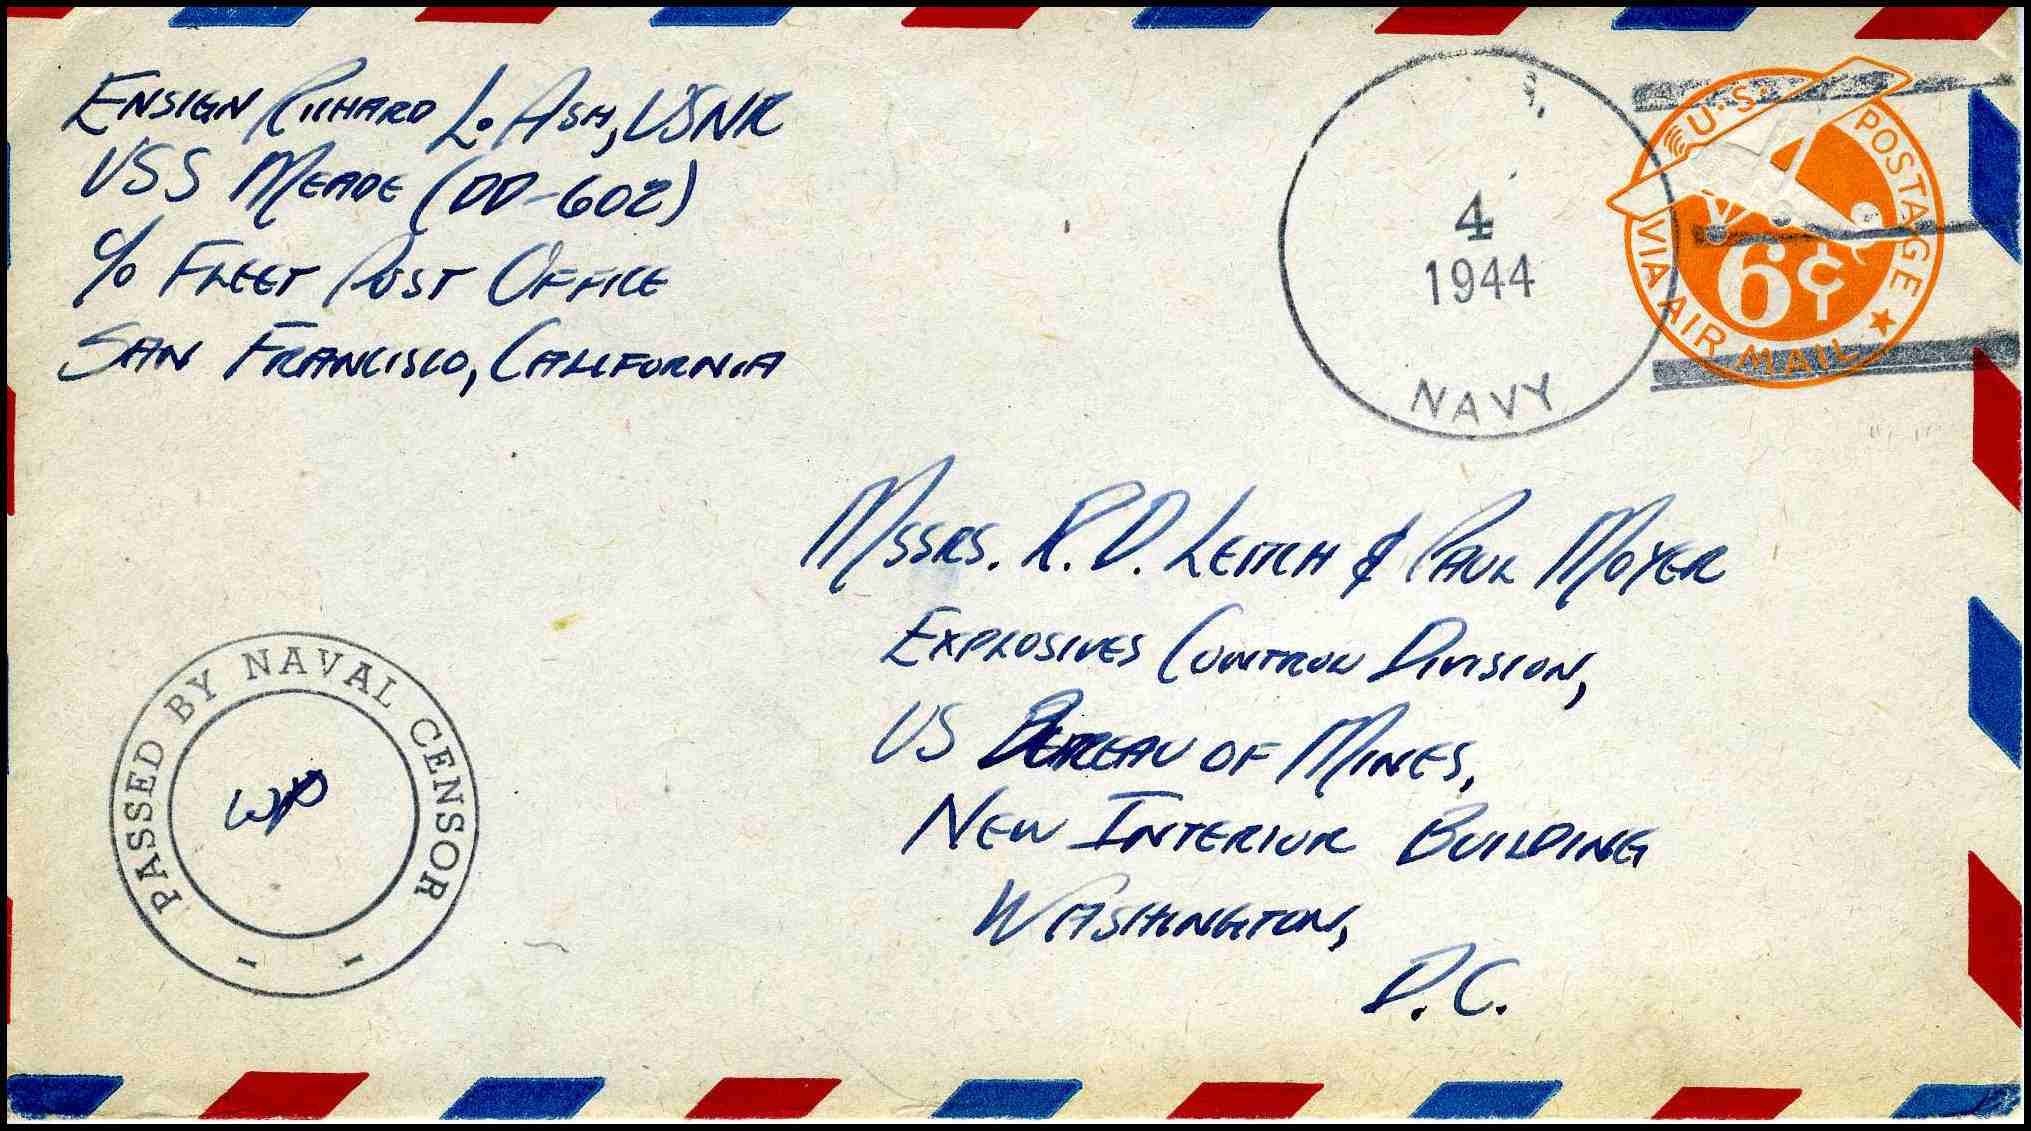 Ensign Richard L. Ash, USNR
USS Meade (DD-602)
c/o Fleet Post Office
San Francisco, California
4
1944
NAVY
U.S. POSTAGE
6¢
VIA AIR MAIL
Mssrs. R. D. Leitch & Paul Moyer
Explosives Control Division,
US Bureau of Mines,
New Interior Building
Washington,
D.C.
PASSED BY NAVAL CENSOR